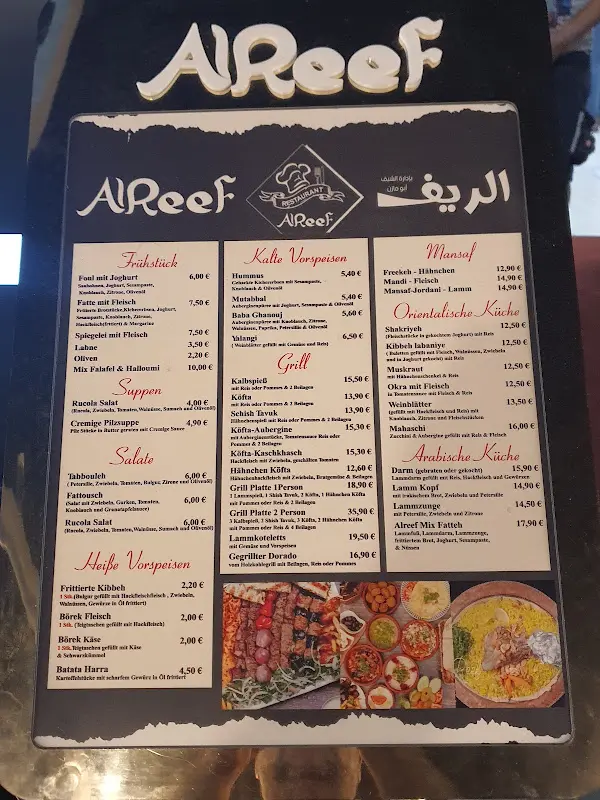 AlReef
AlReef
RESTAURANT
AlReef
بإدارة الشيف
أبو مازن
الريف
Frühstück
Foul mit Joghurt 6,00 €
Saubohnen, Joghurt, Sesampaste,
Knoblauch, Zitrone, Olivenöl
Fatte mit Fleisch 7,50 €
Fritierte Brotstücke, Kichererbsen, Joghurt,
Sesampaste, Knoblauch, Zitrone,
Hackfleisch(frittiert) & Margarine
Spiegelei mit Fleisch 7,50 €
Labne 3,50 €
Oliven 2,20 €
Mix Falafel & Halloumi 10,00 €
Suppen
Rucola Salat 4,00 €
(Rucola, Zwiebeln, Tomaten, Walnüsse, Sumach und Olivenöl)
Cremige Pilzsuppe 4,90 €
Pilz Stücke in Butter geroten mit Cremige Sauce
Salate
Tabbouleh 6,00 €
( Petersilie, Zwiebeln, Tomaten, Bulgur, Zirone und Olivenöl)
Fattousch 6,00 €
(Salat mit Zwiebeln, Gurken, Tomaten,
Knoblauch und Granatapfelsauce)
Rucola Salat 6,00 €
(Rucola, Zwiebeln, Tomaten,Walnüsse, Sumach und Olivenöl)
Heiße Vorspeisen
Frittierte Kibbeh 2,20 €
1 Stk.(Bulgur gefüllt mit Hackfleischfleisch , Zwiebeln,
Walnüssen, Gewürze in Öl frittiert)
Börek Fleisch 2,00 €
1 Stk. (Teigtaschen gefüllt mit Hackfleisch)
Börek Käse 2,00 €
1 Stk.Teigtaschen gefüllt mit Käse
& Schwarzkümmel
Batata Harra 4,50 €
Kartoffelstücke mit scharfem Gewürz in Öl frittiert
Kalte Vorspeisen
Hummus 5,40 €
Gekochte Kichererbsen mit Sesampaste,
Knoblauch & Olivenöl
Mutabbal 5,40 €
Auberginenpüree mit Joghurt, Sesampaste & Olivenöl
Baba Ghanouj 5,60 €
Auberginenpüree mit Knoblauch, Zitrone,
Walnüssen, Paprika, Petersillie & Olivenöl
Yalangi 6,50 €
( Weinblätter gefüllt mit Gemüse und Reis)
Grill
Kalbspieß 15,50 €
mit Reis oder Pommes & 2 Beilagen
Köfta 13,90 €
mit Reis oder Pommes & 2 Beilagen
Schish Tavuk 13,90 €
Hähnchenspieß mit Reis oder Pommes & 2 Beilagen
Köfta-Aubergine 15,30 €
mit Auberginenstücke, Tomatensauce Reis oder
Pommes & 2 Beilagen
Köfta-Kaschkhasch 15,30 €
Hackfleisch mit Zwiebeln, geschälten Tomaten
Hähnchen Köfta 12,60 €
Hähnchenhackfleisch mit Zwiebeln, Bratgemüse & Beilagen
Grill Platte 1Person 18,90 €
1 Lammspieß, 1 Shish Tavuk, 2 Köfta, 1 Hähnchen Köfta
mit Pommes oder Reis & 2 Beilagen
Grill Platte 2 Person 35,90 €
3 Kalbspieß, 2 Shish Tavuk, 3 Köfta, 2 Hähnchen Köfta
mit Pommes oder Reis & 4 Beilagen
Lammkoteletts 19,50 €
mit Gemüse und Vorspeisen
Gegrillter Dorado 16,90 €
vom Holzkohlegrill mit Beilagen, Reis oder Pommes
Mansaf
Freekeh - Hähnchen 12,90 €
Mandi - Fleisch 14,90 €
Mansaf-Jordani - Lamm 14,90 €
Orientalische Küche
Shakriyeh 12,50 €
(Fleischstücke in gekochtem Joghurt) mit Reis
Kibbeh labaniye 12,50 €
( Buletten gefüllt mit Fleisch, Walnüssen, Zwiebeln
und in Joghurt gekocht) mit Reis
Muskrauf 12,50 €
mit Hähnchenschenkel & Reis
Okra mit Fleisch 12,50 €
in Tomatensauce mit Fleisch & Reis
Weinblätter 13,50 €
(gefüllt mit Hackfleisch und Reis) mit
Knoblauch, Zitrone und Fleischstücken
Mahaschi 16,00 €
Zucchini & Aubergine gefüllt mit Reis & Fleisch
Arabische Küche
Darm (gebraten oder gekocht) 15,90 €
Lammdarm gefüllt mit Reis, Hackfleisch und Gewürzen
Lamm Kopf 14,90 €
mit irakischem Brot, Zwiebeln und Petersilie
Lammzunge 14,50 €
mit Petersilie, Zwiebeln und Zitrone
Alreef Mix Fatteh 17,90 €
Lammfuß, Lammdarm, Lammzunge,
frittiertem Brot, Joghurt, Sesampaste,
& Nüssen